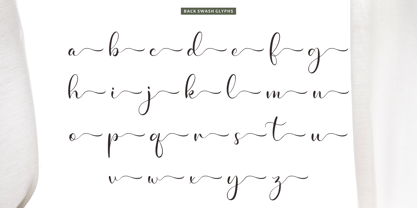 BACK SWASH GLYPHS
a b c d e f g
h i j k l m n
o p q r s t u
v w x y z